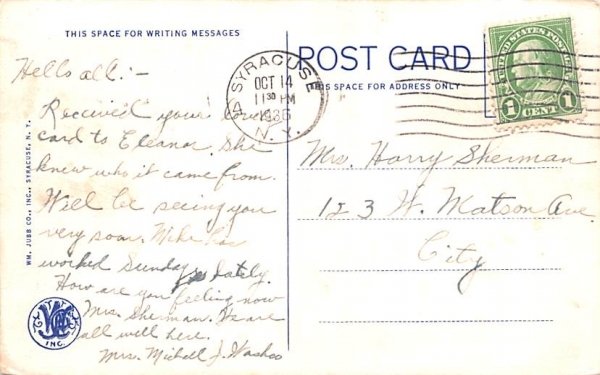 THIS SPACE FOR WRITING MESSAGES
Hello all:-
Received your
card to Eleanor. She
knew who it came from.
Will be seeing you
very soon. Mike has
worked Sunday lately.
How are you feeling now
Mrs. Sherman. We are
all well here.
Mrs. Michell J.
WM. JUBB CO., INC., SYRACUSE, N. Y.
INC.
SYRACUSE
OCT 14
11 30 PM
1936
N.Y.
POST CARD
THIS SPACE FOR ADDRESS ONLY
UNITED STATES POSTAGE
1 CENT 1
Mrs. Harry Sherman
123 W. Matson Ave.
City